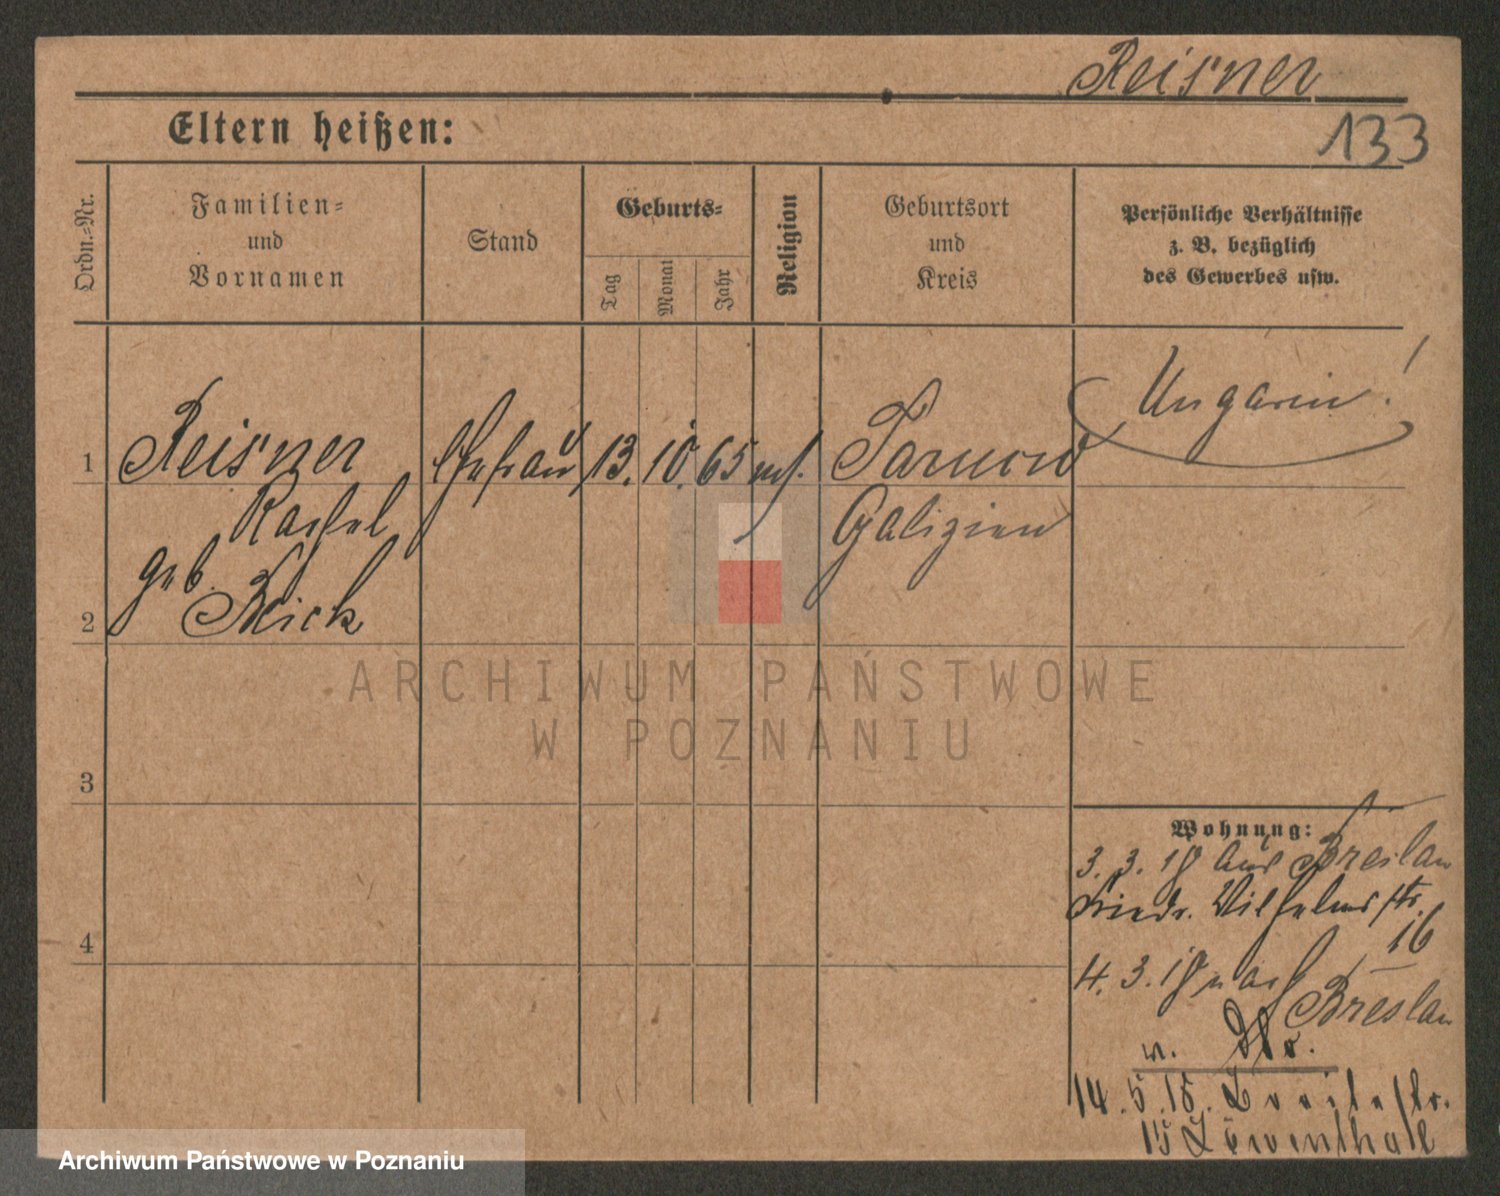 Reisner
133
Eltern heißen:
Ordn.-Nr.
Familien-
und
Vornamen
Stand
Geburts-
Tag
Monat
Jahr
Religion
Geburtsort
und
Kreis
Persönliche Verhältnisse
z. B. bezüglich
des Gewerbes usw.
Ungarin!
1 Reisner Ehefrau 13. 10. 65 mos. Tarnow
Rachel Galizien
geb.
2
3
4
Wohnung:
3. 3. 18 aus Breslau
Friedr. Wilhelmstr.
16
4. 3. 18 nach
Breslau
14. 5. 18. Breitestr.
15 Löwenthal
ARCHIWUM PAŃSTWOWE
W POZNANIU
Archiwum Państwowe w Poznaniu